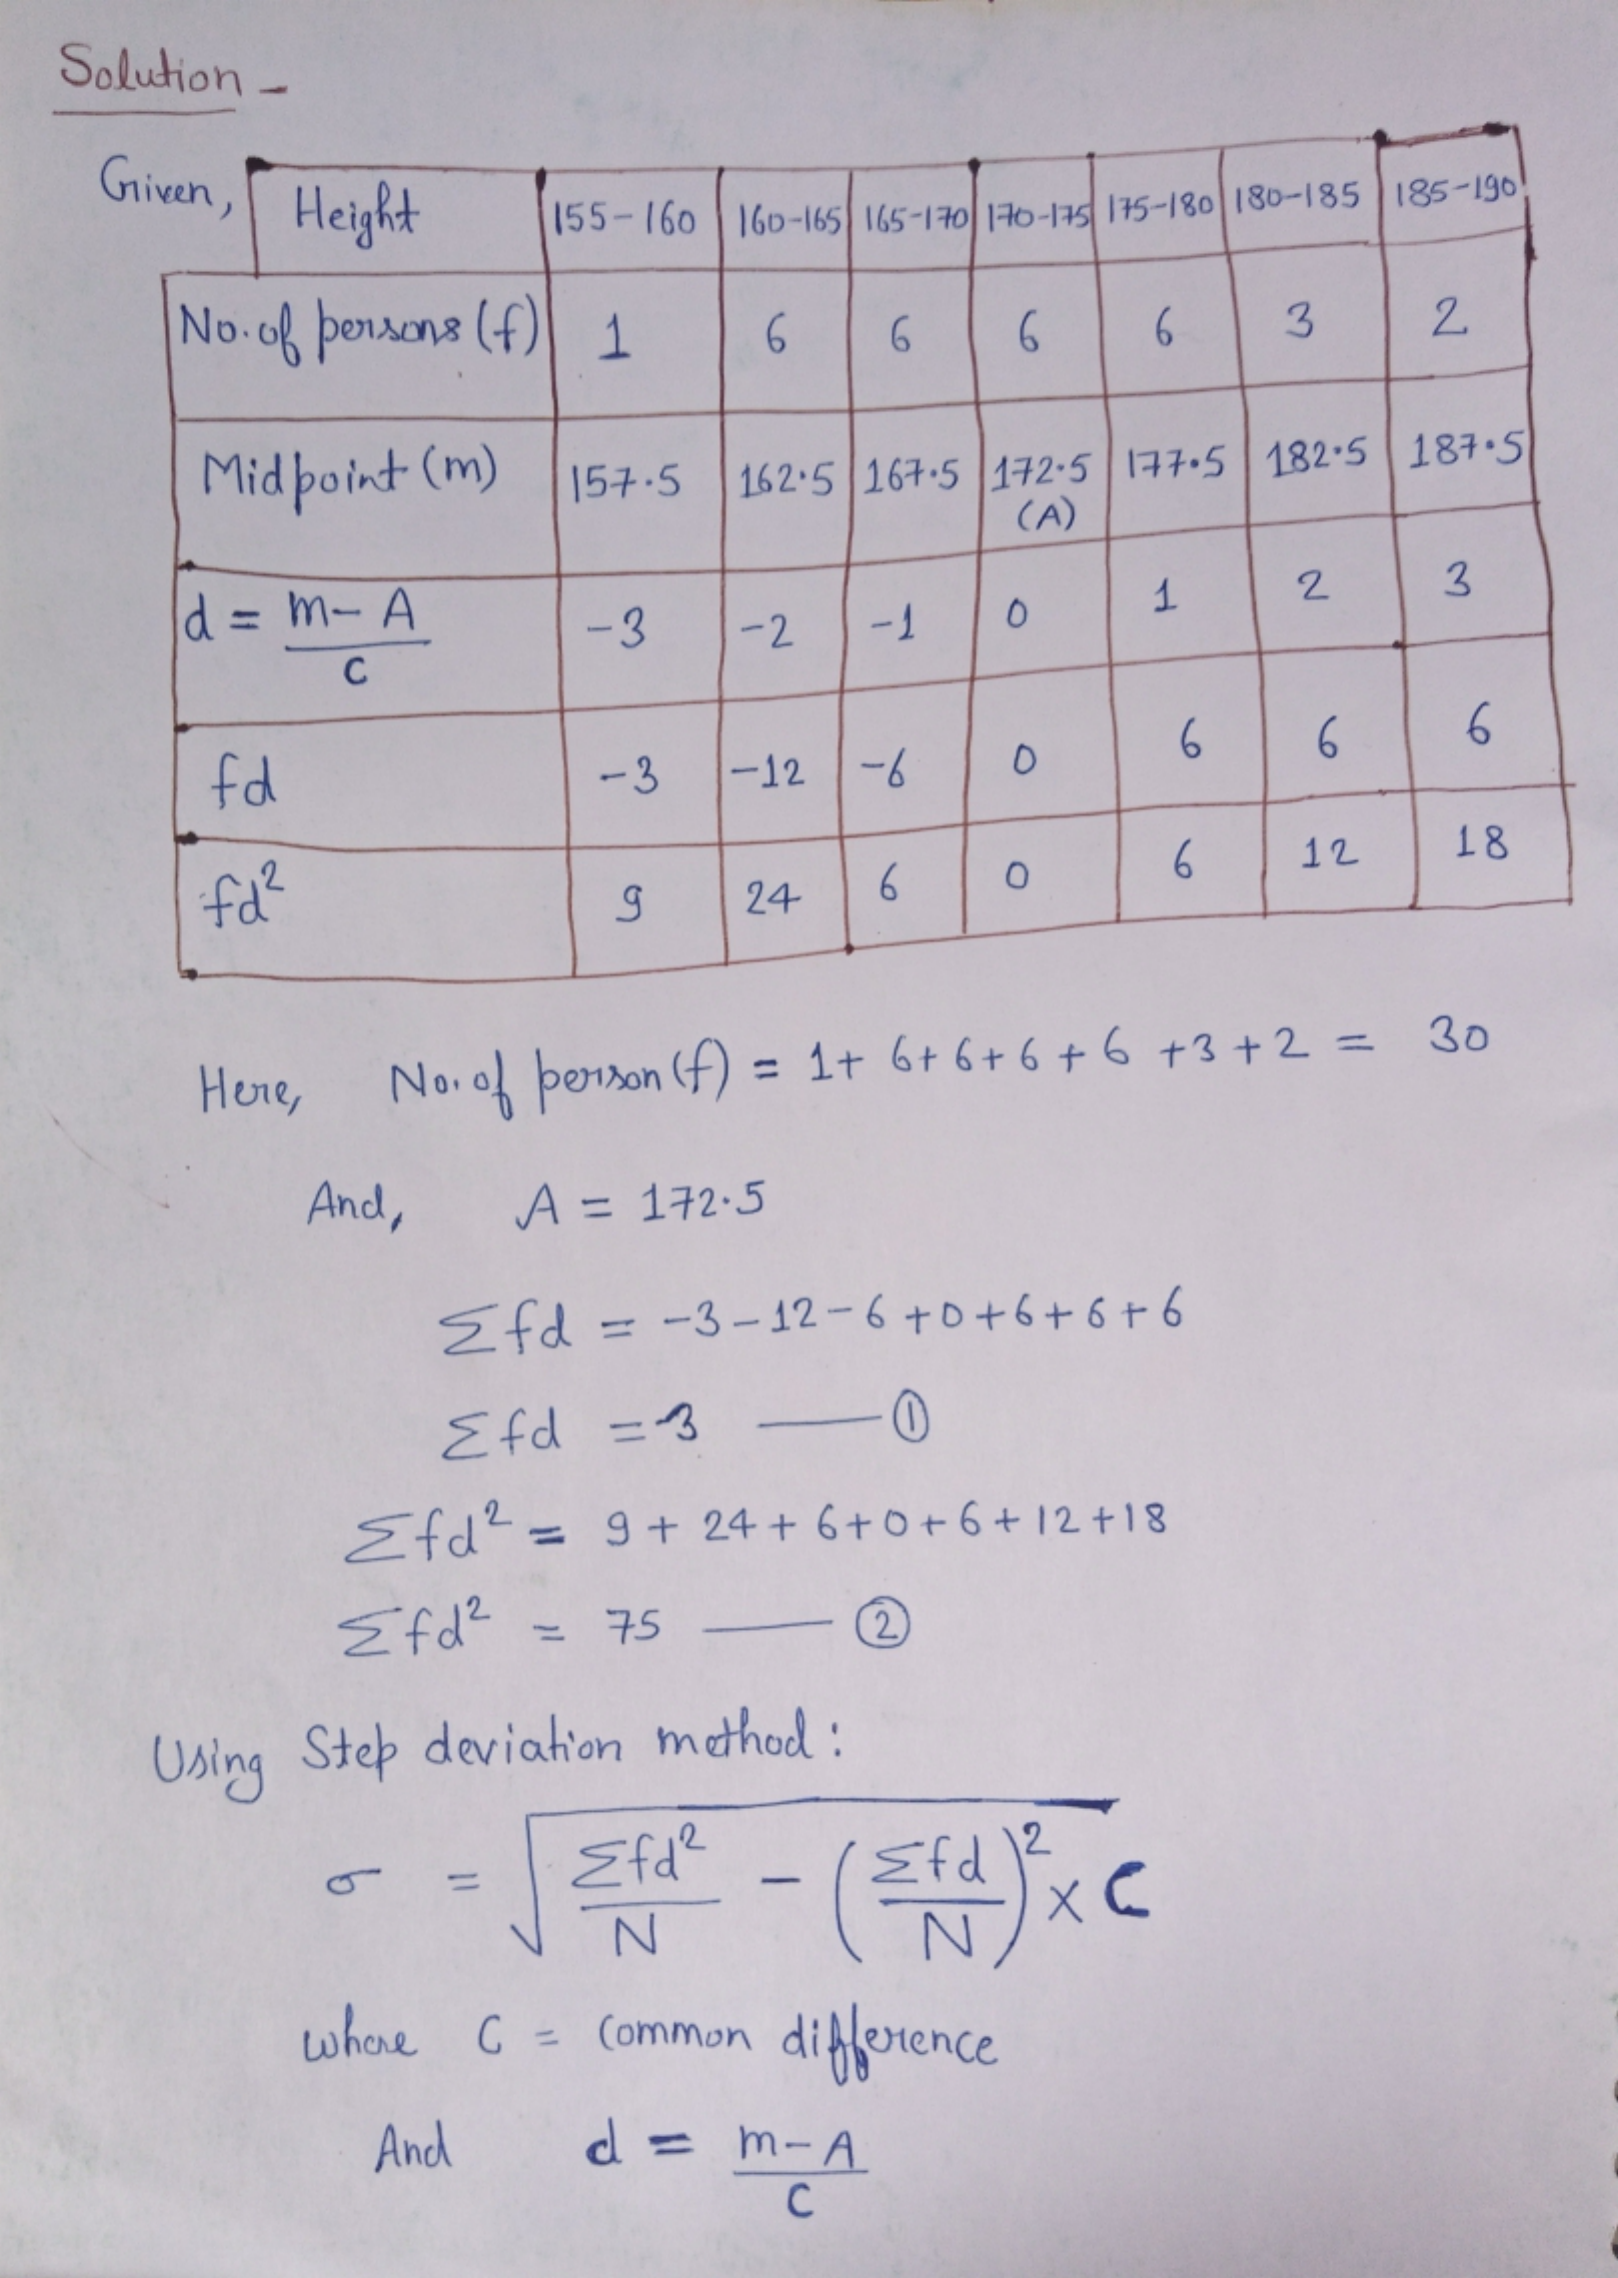 Solution -
Given,
Height 155-160 160-165 165-170 170-175 175-180 180-185 185-190
No. of persons (f) 1 6 6 6 6 3 2
Midpoint (m) 157.5 162.5 167.5 172.5 (A) 177.5 182.5 187.5
d = m-A / c -3 -2 -1 0 1 2 3
fd -3 -12 -6 0 6 6 6
fd² 9 24 6 0 6 12 18
Here, No. of person (f) = 1+ 6+6+6+6+3+2 = 30
And, A = 172.5
Σfd = -3-12-6+0+6+6+6
Σfd = -3 —— ①
Σfd² = 9+24+6+0+6+12+18
Σfd² = 75 —— ②
Using Step deviation method:
σ = √ Σfd²/N - (Σfd/N)² × C
where C = Common difference
And d = m-A / C